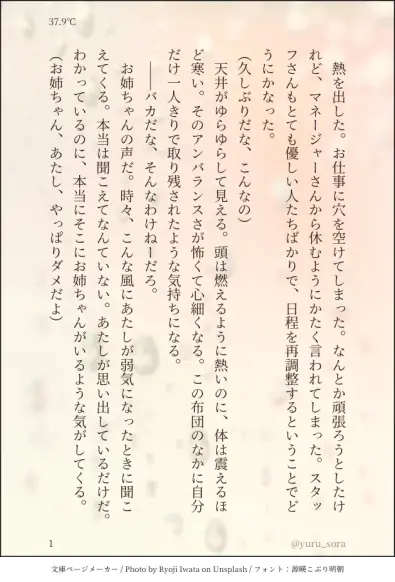 37.9℃
熱を出した。お仕事に穴を空けてしまった。なんとか頑張ろうとしたけ
れど、マネージャーさんから休むようにかたく言われてしまった。スタッ
フさんもとても優しい人たちばかりで、日程を再調整するということでど
うにかなった。
(久しぶりだな、こんなの)
天井がゆらゆらして見える。頭は燃えるように熱いのに、体は震えるほ
ど寒い。そのアンバランスさが怖くて心細くなる。この布団のなかに自分
だけ一人きりで取り残されたような気持ちになる。
――バカだな、そんなわけねーだろ。
お姉ちゃんの声だ。時々、こんな風にあたしが弱気になったときに聞こ
えてくる。本当は聞こえてなんていない。あたしが思い出しているだけだ。
わかっているのに、本当にそこにお姉ちゃんがいるような気がしてくる。
(お姉ちゃん、あたし、やっぱりダメだよ)
1
@yuru_sora
文庫ページメーカー / Photo by Ryoji Iwata on Unsplash / フォント：源暎こぶり明朝